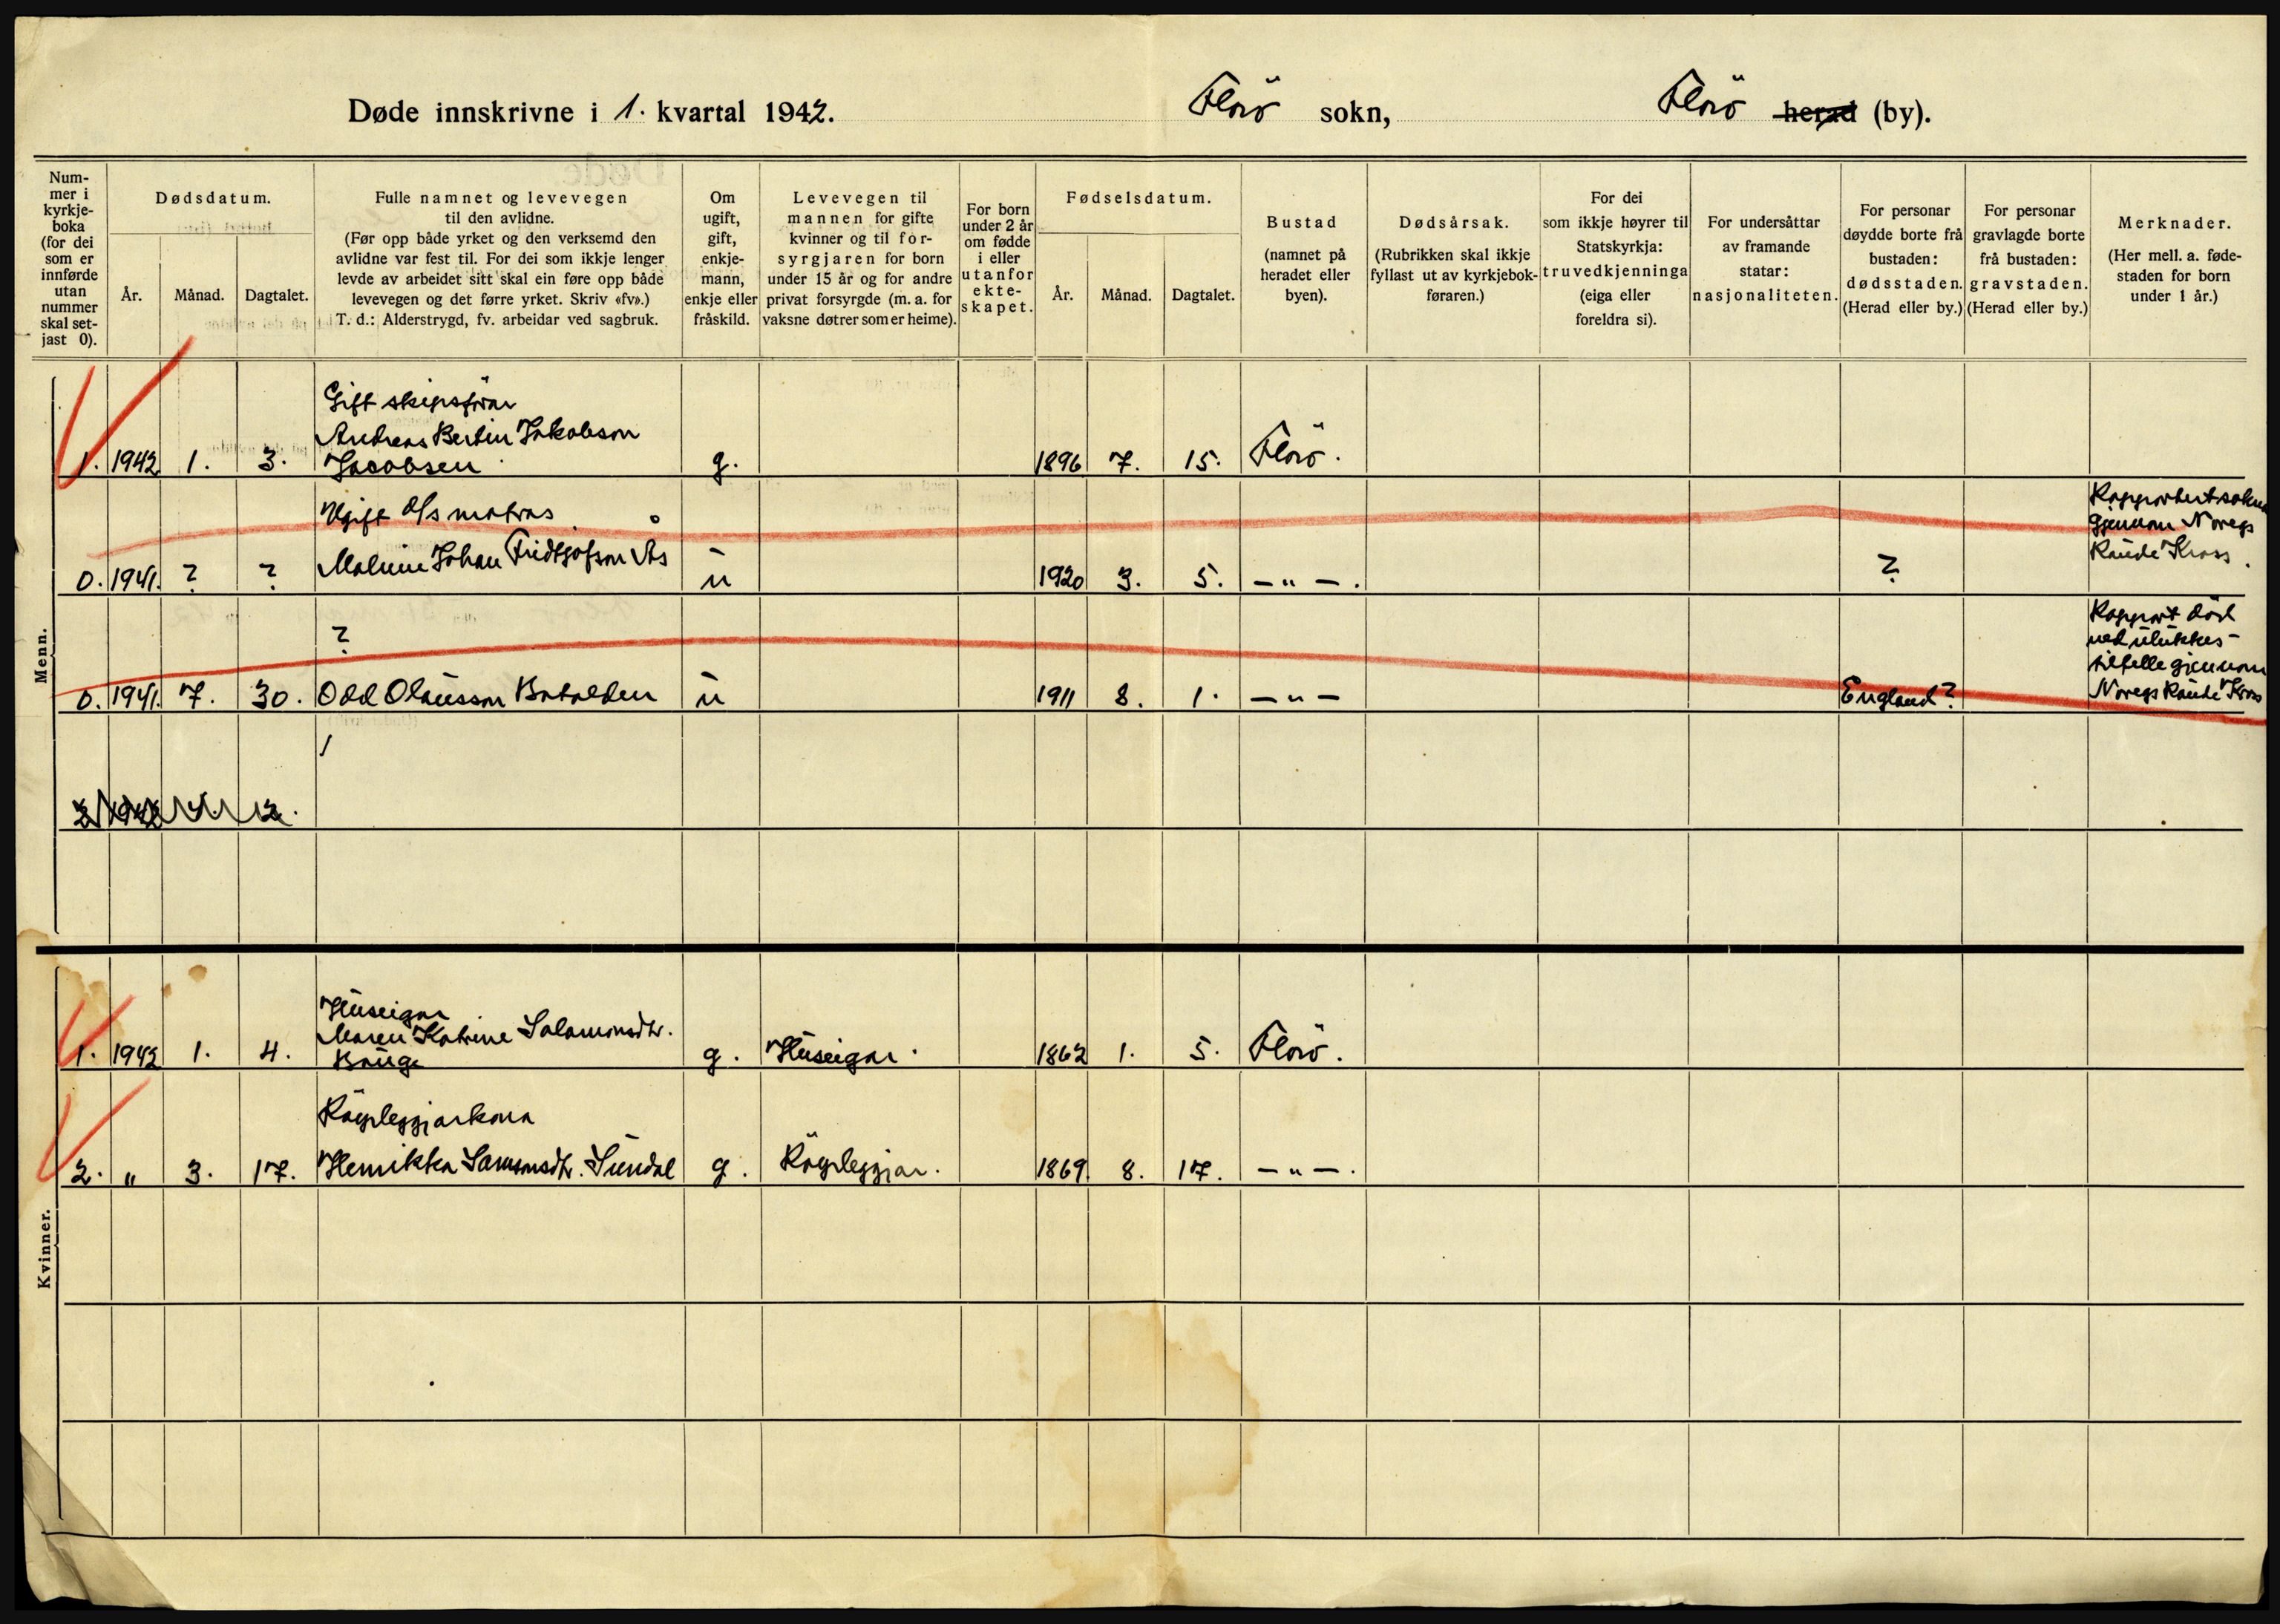 Døde innskrivne i 1. kvartal 1942. Florö sokn, Florö herad (by).
Nummer i kyrkjeboka (for dei som er innførde utan nummer skal setjast 0).
Dødsdatum.
År. Månad. Dagtalet.
Fulle namnet og levevegen
til den avlidne.
(Før opp både yrket og den verksemd den
avlidne var fest til. For dei som ikkje lenger
levde av arbeidet sitt skal ein føre opp både
levevegen og det førre yrket. Skriv «fv».)
T. d.: Alderstrygd, fv. arbeidar ved sagbruk.
Om
ugift,
gift,
enkje-
mann,
enkje eller
fråskild.
Levevegen til
mannen for gifte
kvinner og til for-
syrgjaren for born
under 15 år og for andre
privat forsyrgde (m. a. for
vaksne døtrer som er heime).
For born
under 2 år
om fødde
i eller
utanfor
ekte-
skapet.
Fødselsdatum.
År. Månad. Dagtalet.
Bustad
(namnet på
heradet eller
byen).
Dødsårsak.
(Rubrikken skal ikkje
fyllast ut av kyrkjebok-
føraren.)
For dei
som ikkje høyrer til
Statskyrkja:
truvedkjenninga
(eiga eller
foreldra si).
For undersåttar
av framande
statar:
nasjonaliteten.
For personar
døydde borte frå
bustaden:
dødsstaden.
(Herad eller by.)
For personar
gravlagde borte
frå bustaden:
gravstaden.
(Herad eller by.)
Merknader.
(Her mell. a. føde-
staden for born
under 1 år.)
Menn.
Gift skipsförar
Andreas Bertin Jakobson
1. 1942 1. 3. Jacobsen g. 1896 7. 15. Florö.
Ugift d/s matros
0. 1941. ? ? Johan Fridtjofson Ås u 1920 3. 5. — " —. ?
gjennom Noregs
Raude Kross.
?
0. 1941. 7. 30. Odd Olausson Batalden u 1911 8. 1. — " — England?
Rapport död
ved ulukkes-
tilfelle gjennom
Noregs Raude Kross
Kvinner.
Huseigar
Maren Katrine Salamonsdtr.
1. 1942 1. 4. Hauge g. Huseigar. 1862 1. 5. Florö.
Röyrleggjarkona
2. " 3. 17. Henrikka Samsonsdtr. Sundal g. Röyrleggjar. 1869. 8. 17. — " —.